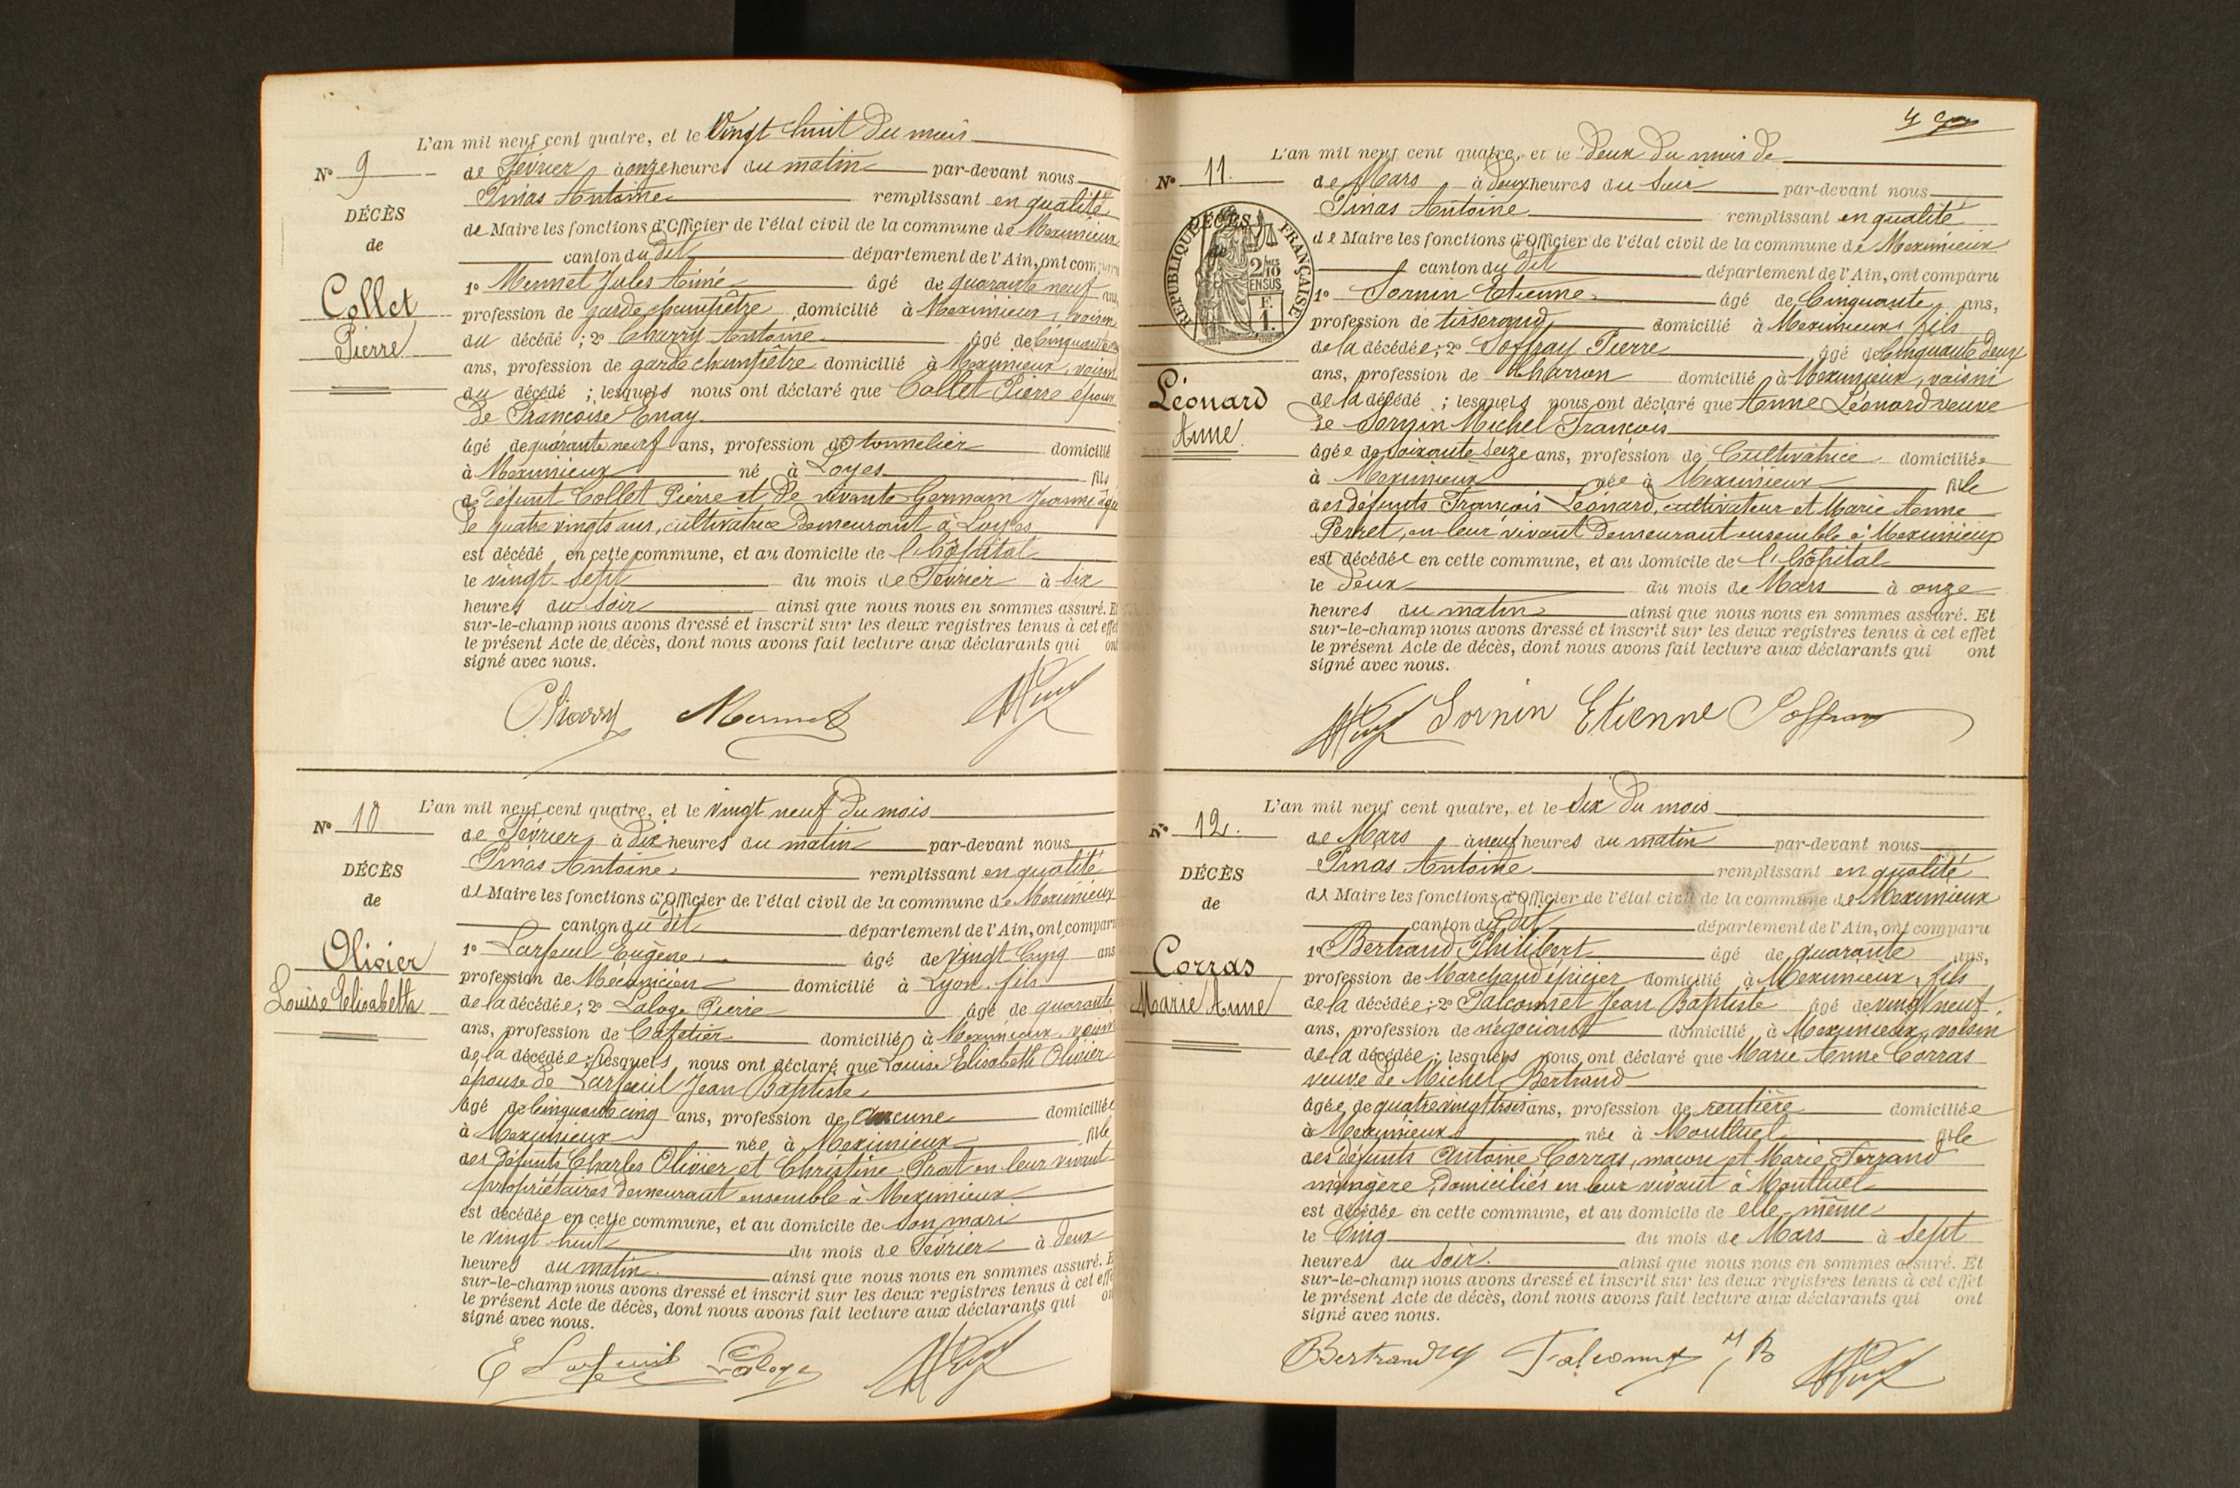 L'an mil neuf cent quatre, et le Vingt huit du mois
N° 9
de Février à onze heures du matin par-devant nous
Pinas Antoine remplissant en qualité
DÉCÈS
de Maire les fonctions d'Officier de l'état civil de la commune de Meximieux
de
canton du dit département de l'Ain, ont comparu
1° Mermet Jules Aimé âgé de quarante neuf ans,
Collet
profession de garde champêtre domicilié à Meximieux, voisin
Pierre
du décédé ; 2° Charry Antoine âgé de Cinquante
ans, profession de garde champêtre domicilié à Meximieux, voisin
du décédé ; lesquels nous ont déclaré que Collet Pierre époux
de Françoise Enay
âgé de quarante neuf ans, profession de tonnelier domicilié
à Meximieux né à Loyes fils
de défunt Collet Pierre et de vivante Germain Jeanne âgée
de quatre vingts ans, cultivatrice demeurant à Loyes
est décédé en cette commune, et au domicile de l'hôpital
le vingt-sept du mois de Février à six
heures du soir ainsi que nous nous en sommes assuré. Et
sur-le-champ nous avons dressé et inscrit sur les deux registres tenus à cet effet
le présent Acte de décès, dont nous avons fait lecture aux déclarants qui ont
signé avec nous.
Mermet
L'an mil neuf cent quatre, et le vingt neuf du mois
N° 10
de Février à dix heures du matin par-devant nous
Pinas Antoine remplissant en qualité
DÉCÈS
de Maire les fonctions d'Officier de l'état civil de la commune de Meximieux
de
canton du dit département de l'Ain, ont comparu
Olivier
1° Larfeuil Eugène âgé de vingt cinq ans
profession de Mécanicien domicilié à Lyon, fils
Louise Elisabeth
de la décédée ; 2° Laloge Pierre âgé de quarante
ans, profession de Cafetier domicilié à Meximieux, voisin
de la décédée ; lesquels nous ont déclaré que Louise Elisabeth Olivier
épouse de Larfeuil Jean Baptiste
âgé de cinquante cinq ans, profession de aucune domiciliée
à Meximieux née à Meximieux fille
des défunts Charles Olivier et Christine Prost en leur vivant
propriétaires demeurant ensemble à Meximieux
est décédée en cette commune, et au domicile de son mari
le vingt-huit du mois de Février à deux
heures du matin ainsi que nous nous en sommes assuré. E
sur-le-champ nous avons dressé et inscrit sur les deux registres tenus à cet effe
le présent Acte de décès, dont nous avons fait lecture aux déclarants qui on
signé avec nous.
E Larfeuil Laloge
4
L'an mil neuf cent quatre, et le deux du mois de
N° 11.
de Mars à deux heures du soir par-devant nous
Pinas Antoine remplissant en qualité
DÉCÈS
de
RÉPUBLIQUE FRANÇAISE
2 10 EN SUS
F. 1.
de Maire les fonctions d'Officier de l'état civil de la commune de Meximieux
canton du dit département de l'Ain, ont comparu
1° Sornin Etienne âgé de Cinquante ans,
profession de tisserand domicilié à Meximieux, fils
de la décédée ; 2° Soffray Pierre âgé de Cinquante deux
Léonard
ans, profession de charron domicilié à Meximieux, voisin
Anne
de la décédé ; lesquels nous ont déclaré que Anne Léonard veuve
de Sornin Michel François
âgée de soixante seize ans, profession de Cultivatrice domiciliée
à Meximieux née à Meximieux fille
des défunts François Léonard, cultivateur et Marie Anne
Perret, en leur vivant demeurant ensemble à Meximieux
est décédée en cette commune, et au domicile de l'hôpital
le deux du mois de Mars à onze
heures du matin ainsi que nous nous en sommes assuré. Et
sur-le-champ nous avons dressé et inscrit sur les deux registres tenus à cet effet
le présent Acte de décès, dont nous avons fait lecture aux déclarants qui ont
signé avec nous.
Sornin Etienne Soffray
L'an mil neuf cent quatre, et le six du mois
N° 12.
de Mars à neuf heures du matin par-devant nous
Pinas Antoine remplissant en qualité
DÉCÈS
de Maire les fonctions d'Officier de l'état civil de la commune de Meximieux
de
canton du dit département de l'Ain, ont comparu
1° Bertrand Philibert âgé de quarante ans,
Corras
profession de Marchand épicier domicilié à Meximieux, fils
Marie Anne
de la décédée ; 2° Falconnet Jean Baptiste âgé de vingt neuf
ans, profession de négociant domicilié à Meximieux, voisin
de la décédée ; lesquels nous ont déclaré que Marie Anne Corras
veuve de Michel Bertrand
âgée de quatre vingt trois ans, profession de rentière domiciliée
à Meximieux née à Montluel fille
des défunts Antoine Corras, maçon et Marie Ferrand
ménagère, domiciliés en leur vivant à Montluel
est décédée en cette commune, et au domicile de elle-même
le Cinq du mois de Mars à sept
heures du soir. ainsi que nous nous en sommes assuré. Et
sur-le-champ nous avons dressé et inscrit sur les deux registres tenus à cet effet
le présent Acte de décès, dont nous avons fait lecture aux déclarants qui ont
signé avec nous.
Bertrand Falconnet